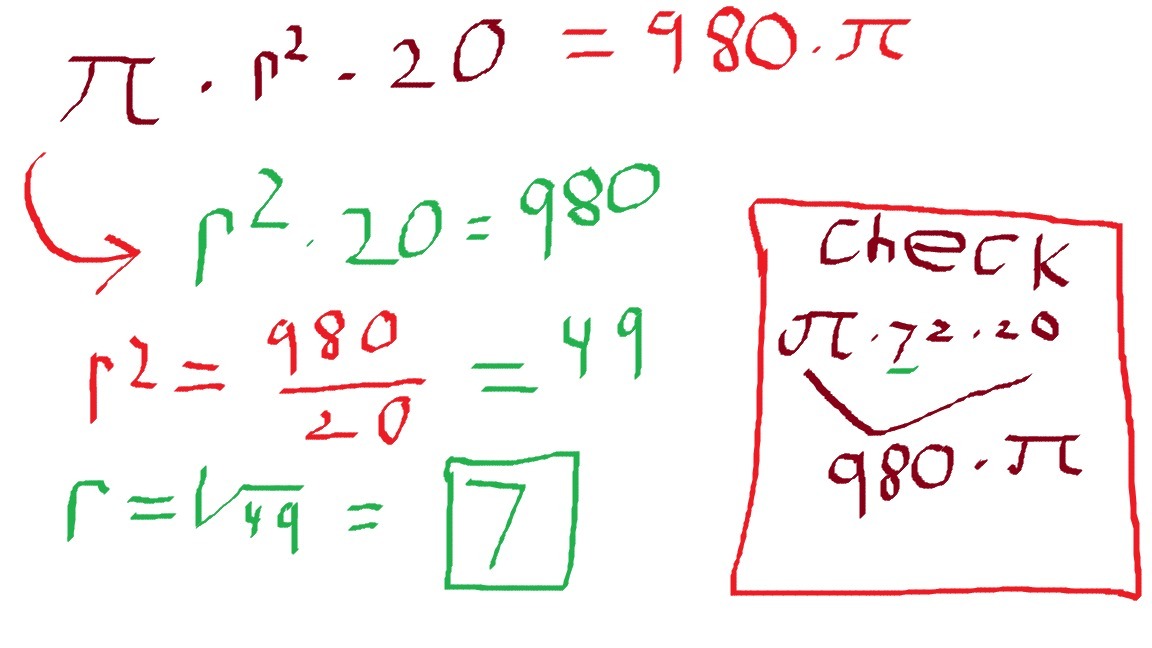 π · r² · 20 = 980 · π
r² · 20 = 980
r² = 980/20 = 49
r = √49 = 7
Check
π · 7² · 20
980 · π